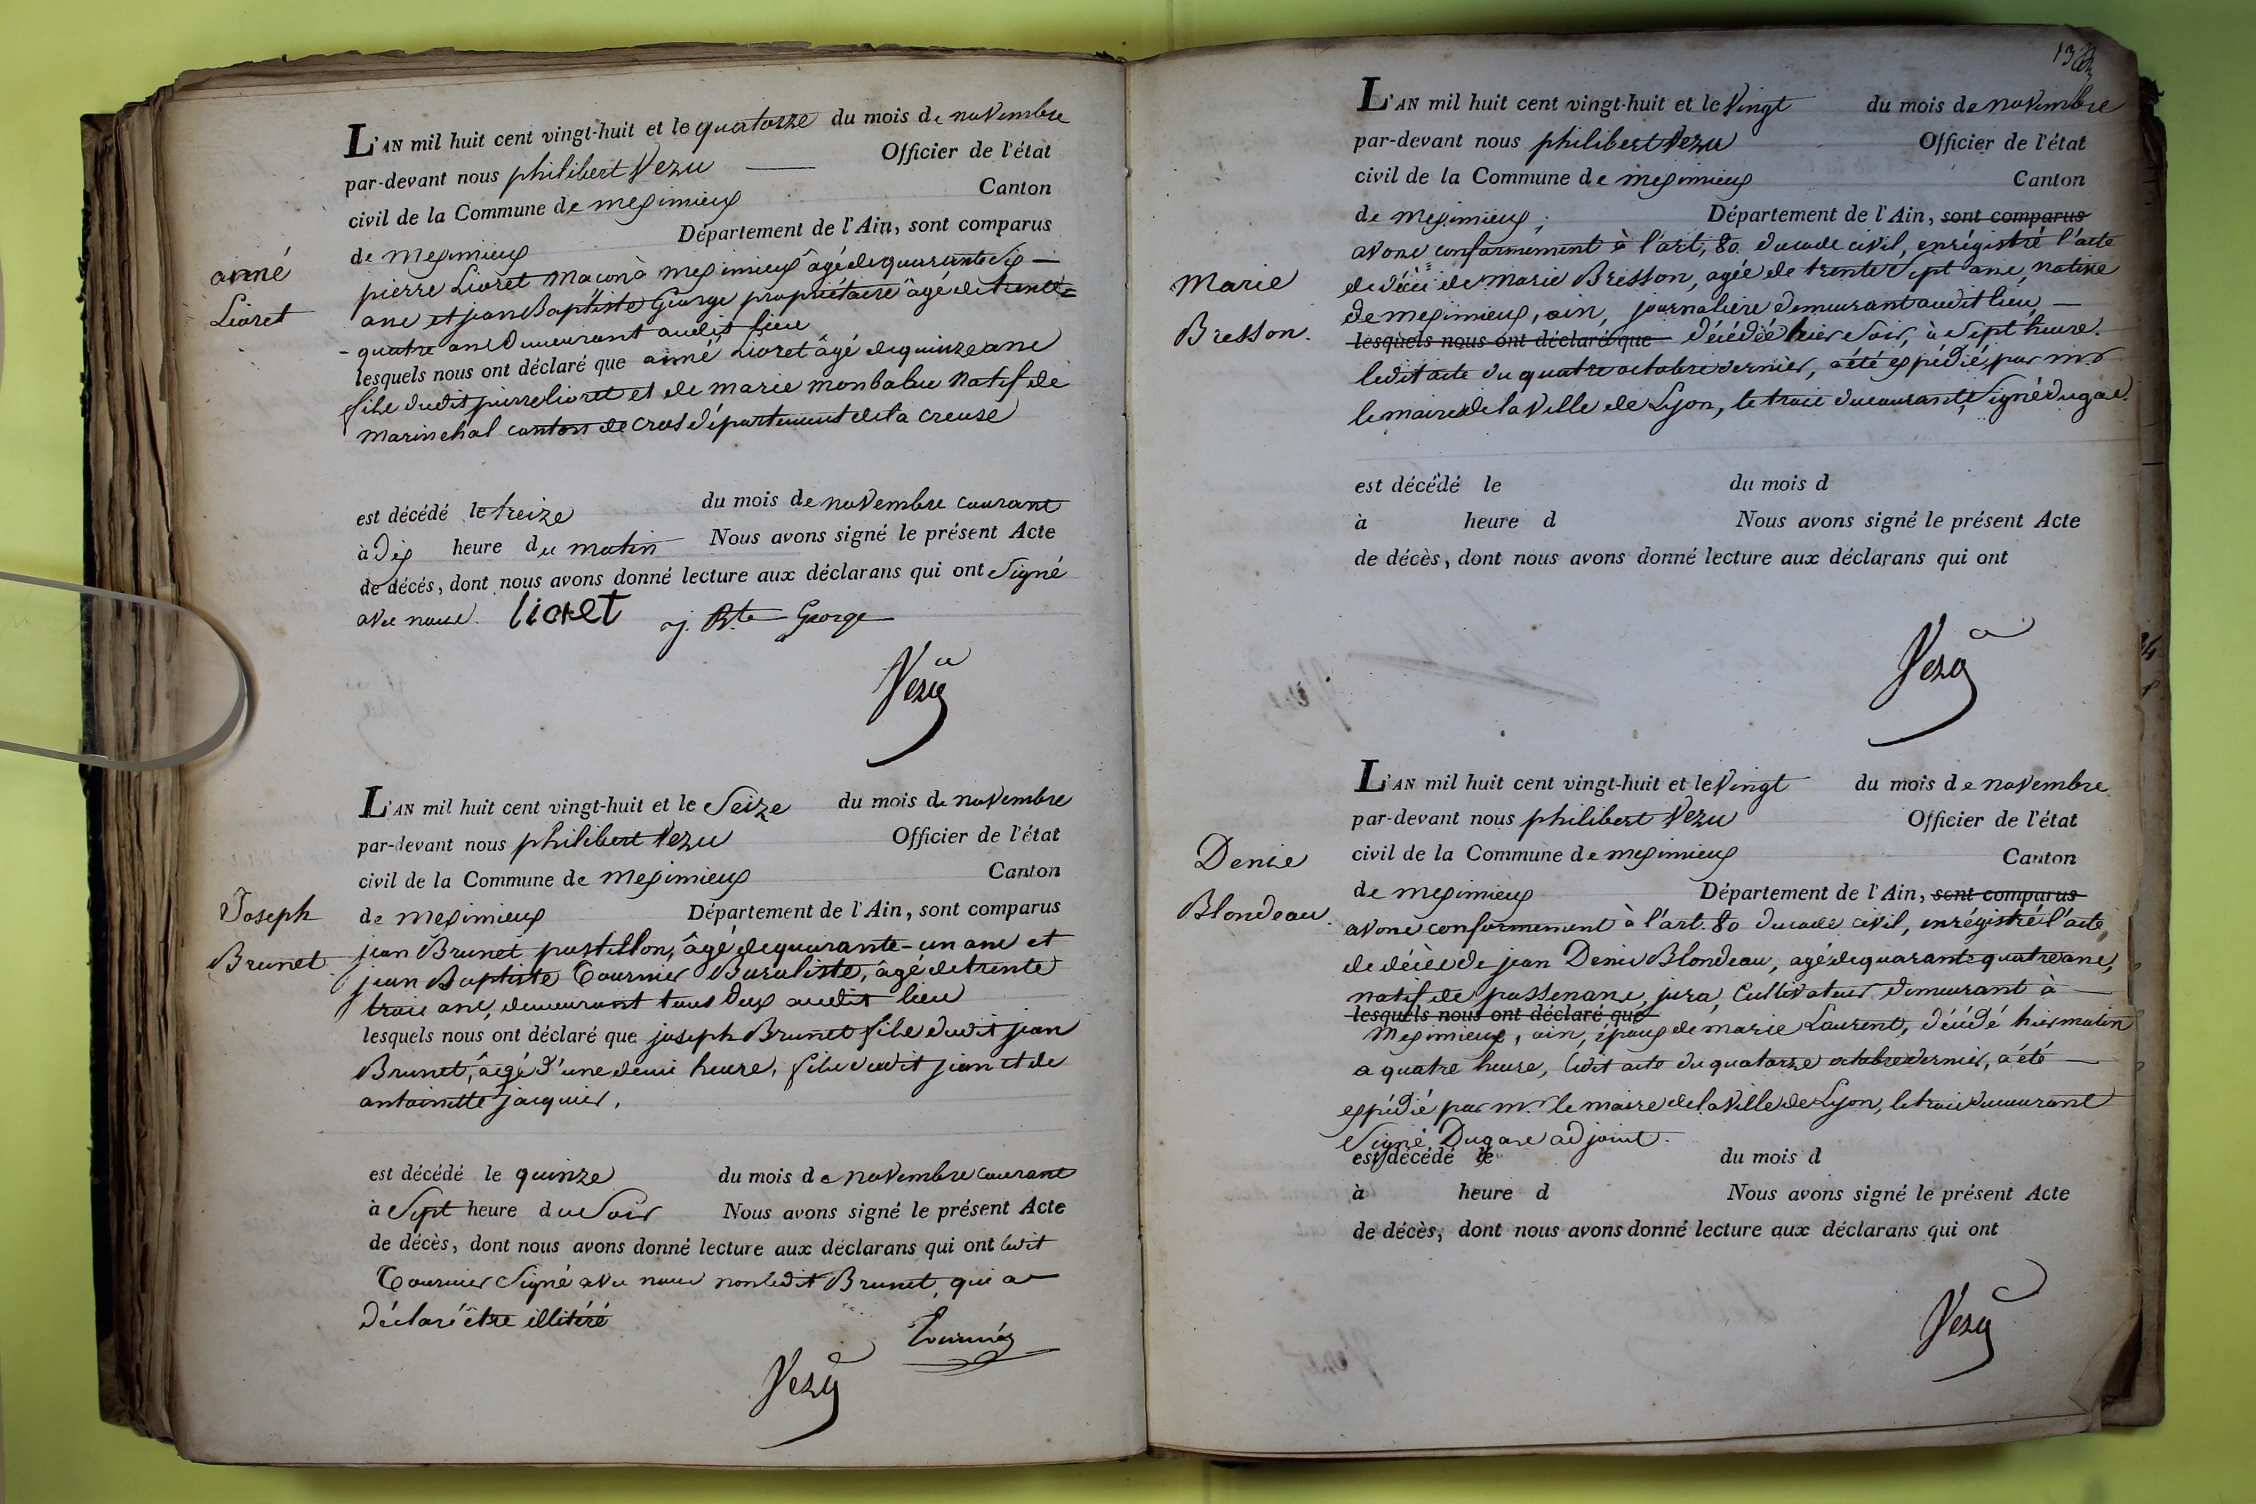 aimé
Lioret
L'AN mil huit cent vingt-huit et le quatorze du mois de novembre
par-devant nous philibert Vezu Officier de l'état
civil de la Commune de meximieux Canton
de meximieux Département de l'Ain, sont comparus
pierre Lioret maçon à meximieux âgé de quarante six
ans et jean Baptiste George propriétaire âgé de trente-
-quatre ans demeurant audit lieu
lesquels nous ont déclaré que aimé Lioret âgé de quinze ans
fils dudit pierre lioret et de marie monbabu natif de
marinchal canton de Croc département de la creuse
est décédé le treize du mois de novembre courant
à dix heure du matin Nous avons signé le présent Acte
de décés, dont nous avons donné lecture aux déclarans qui ont signé
avec nous. lioret j. Bte George
Vezu
Joseph
Brunet
L'AN mil huit cent vingt-huit et le Seize du mois de novembre
par-devant nous philibert Vezu Officier de l'état
civil de la Commune de meximieux Canton
de meximieux Département de l'Ain, sont comparus
jean Brunet postillon, âgé de quarante-un ans et
jean Baptiste Tournier Buraliste, âgé de trente
trois ans, demeurant tous deux audit lieu
lesquels nous ont déclaré que joseph Brunet fils dudit jean
Brunet, âgé d'une demi heure, fils dudit jean et de
antoinette jacquier,
est décédé le quinze du mois de novembre courant
à Sept heure du Soir Nous avons signé le présent Acte
de décès, dont nous avons donné lecture aux déclarans qui ont ledit
Tournier Signé avec nous non ledit Brunet, qui a
déclaré être illitéré
Tournier
Vezu
13
Marie
Bresson.
L'AN mil huit cent vingt-huit et le Vingt du mois de novembre
par-devant nous philibert Vezu Officier de l'état
civil de la Commune de meximieux Canton
de meximieux, Département de l'Ain, sont comparus
avons conformement à l'art, 80 du code civil, enrégistré l'acte
de décès de Marie Bresson, agée de trente Sept ans, native
de meximieux, ain, journalière demeurant audit lieu
lesquels nous ont déclaré que décédée hier Soir, à Sept heure.
ledit acte du quatre octobre dernier, a été expédié, par mr
le maire de la Ville de Lyon, le trois du courant, Signé dugas.
est décédé le du mois d
à heure d Nous avons signé le présent Acte
de décès, dont nous avons donné lecture aux déclarans qui ont
Vezu
Denis
Blondeau.
L'AN mil huit cent vingt-huit et le Vingt du mois de novembre
par-devant nous philibert Vezu Officier de l'état
civil de la Commune de meximieux Canton
de meximieux Département de l'Ain, sont comparus
avons conformement à l'art. 80 du code civil, enrégistré l'acte
de décès de jean Denis Blondeau, agé de quarante quatre ans,
natif de passenans, jura, Cultivateur demeurant à
lesquels nous ont déclaré que
Meximieux, ain, époux de marie Laurent, décédé hier matin
a quatre heure, ledit acte du quatorze octobre dernier, a été
expédié par mr le maire de la Ville de Lyon, le trois du courant
Signé Dugas adjoint.
est décédé le du mois d
à heure d Nous avons signé le présent Acte
de décès, dont nous avons donné lecture aux déclarans qui ont
Vezu